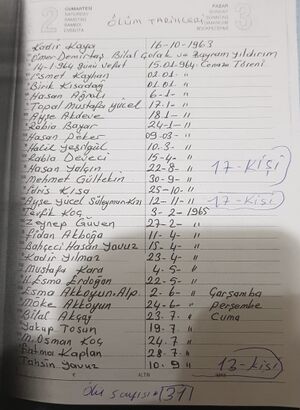 2 CUMARTESİ
PAZAR 3
ÖLÜM TARİHLERİ
Kadir Kaya 16-10-1963
Ömer Demirtaş Bilal Çolak ve Bayram yıldırım
14-1964 günü vefat 15.01.1964 Cenaze Töreni
İsmet Kayhan 01.01.- "
Binik Kısadağ 01.01.- "
Hasan Ağralı 6-1- "
Topal Mustafa yücel 17-1- "
Ayşe Akdeve 18.1- "
Rabia Bayar 24-1- "
Hasan Peker 09-03- "
Halil yeşilgül 10.3- "
Rabia Deveci 15-4- "
Hasan Yalçın 22-8- " 17-Kişi
Mehmet Gültekin 30-9- "
İdris Kısa 25-10- "
Ayşe Yücel Süleyman Kızı 12-11- " 17-Kişi
Tevfik Koç 3-2-1965
Zeynep Güven 27-2- "
Fidan Akboğa 4-4- "
Bahçeci Hasan Yavuz 15-4- "
Kadir Yılmaz 23-4- "
Mustafa Kara 4-5- "
H. Esma Erdoğan 22-5- "
Esma Akkoyun-Alp. 2-6- " Çarşamba
Möke Akkoyun 24-6- " perşembe
Bilal Akçay 23-7. " Cuma
Yakup Tosun 19.7. "
M. Osman Koç 24.7 "
Fatma Kaplan 28.7. "
Tahsin Yavuz 10.9 " 13-Kişi
ALTIN
ölü sayısı = 31